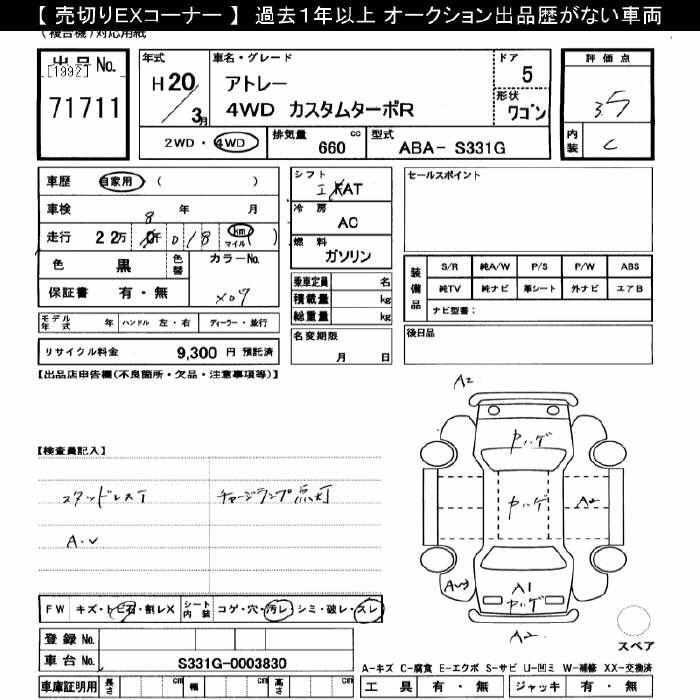 【 売切りEXコーナー 】 過去1年以上 オークション出品歴がない車両
(複合機)対応用紙
出品 No.
[1992]
71711
年式
H20／3月
車名・グレード
アトレー
4WD カスタムターボR
ドア
5
形状
ワゴン
2WD・4WD
排気量 660 cc
型式 ABA- S331G
評価点
3.5
内装 C
車歴 自家用 ( )
車検 8 年 月
走行 22万 千 018 km マイル ( )
色 黒 色替 カラーNo.
X07
保証書 有・無
モデル年式 年 ハンドル 左・右 ディーラー・並行
リサイクル料金 9,300 円 預託済
シフト
AT
冷房
AC
燃料
ガソリン
乗車定員 名
積載量 kg
総重量 kg
名変期限
月 日
セールスポイント
装備品
S/R 純A/W P/S P/W ABS
純TV 純ナビ 革シート 外ナビ エアB
ナビ型番：
後日品
【出品店申告欄(不良箇所・欠品・注意事項等)】
【検査員記入】
スタッドレスT
チャージランプ点灯
A.V
A2
ヤハゲ
ヤハゲ
A2
A1
ヤハゲ
A2
FW キズ・トビ石・割レX シート内装 コゲ・穴・汚レ・シミ・破レ・スレ
登録 No.
車台 No. S331G-0003830
車庫証明用 長さ cm 幅 cm 高さ cm
スペア
A-キズ C-腐食 E-エクボ S-サビ U-凹ミ W-補修 XX-交換済
工具 有・無 ジャッキ 有・無